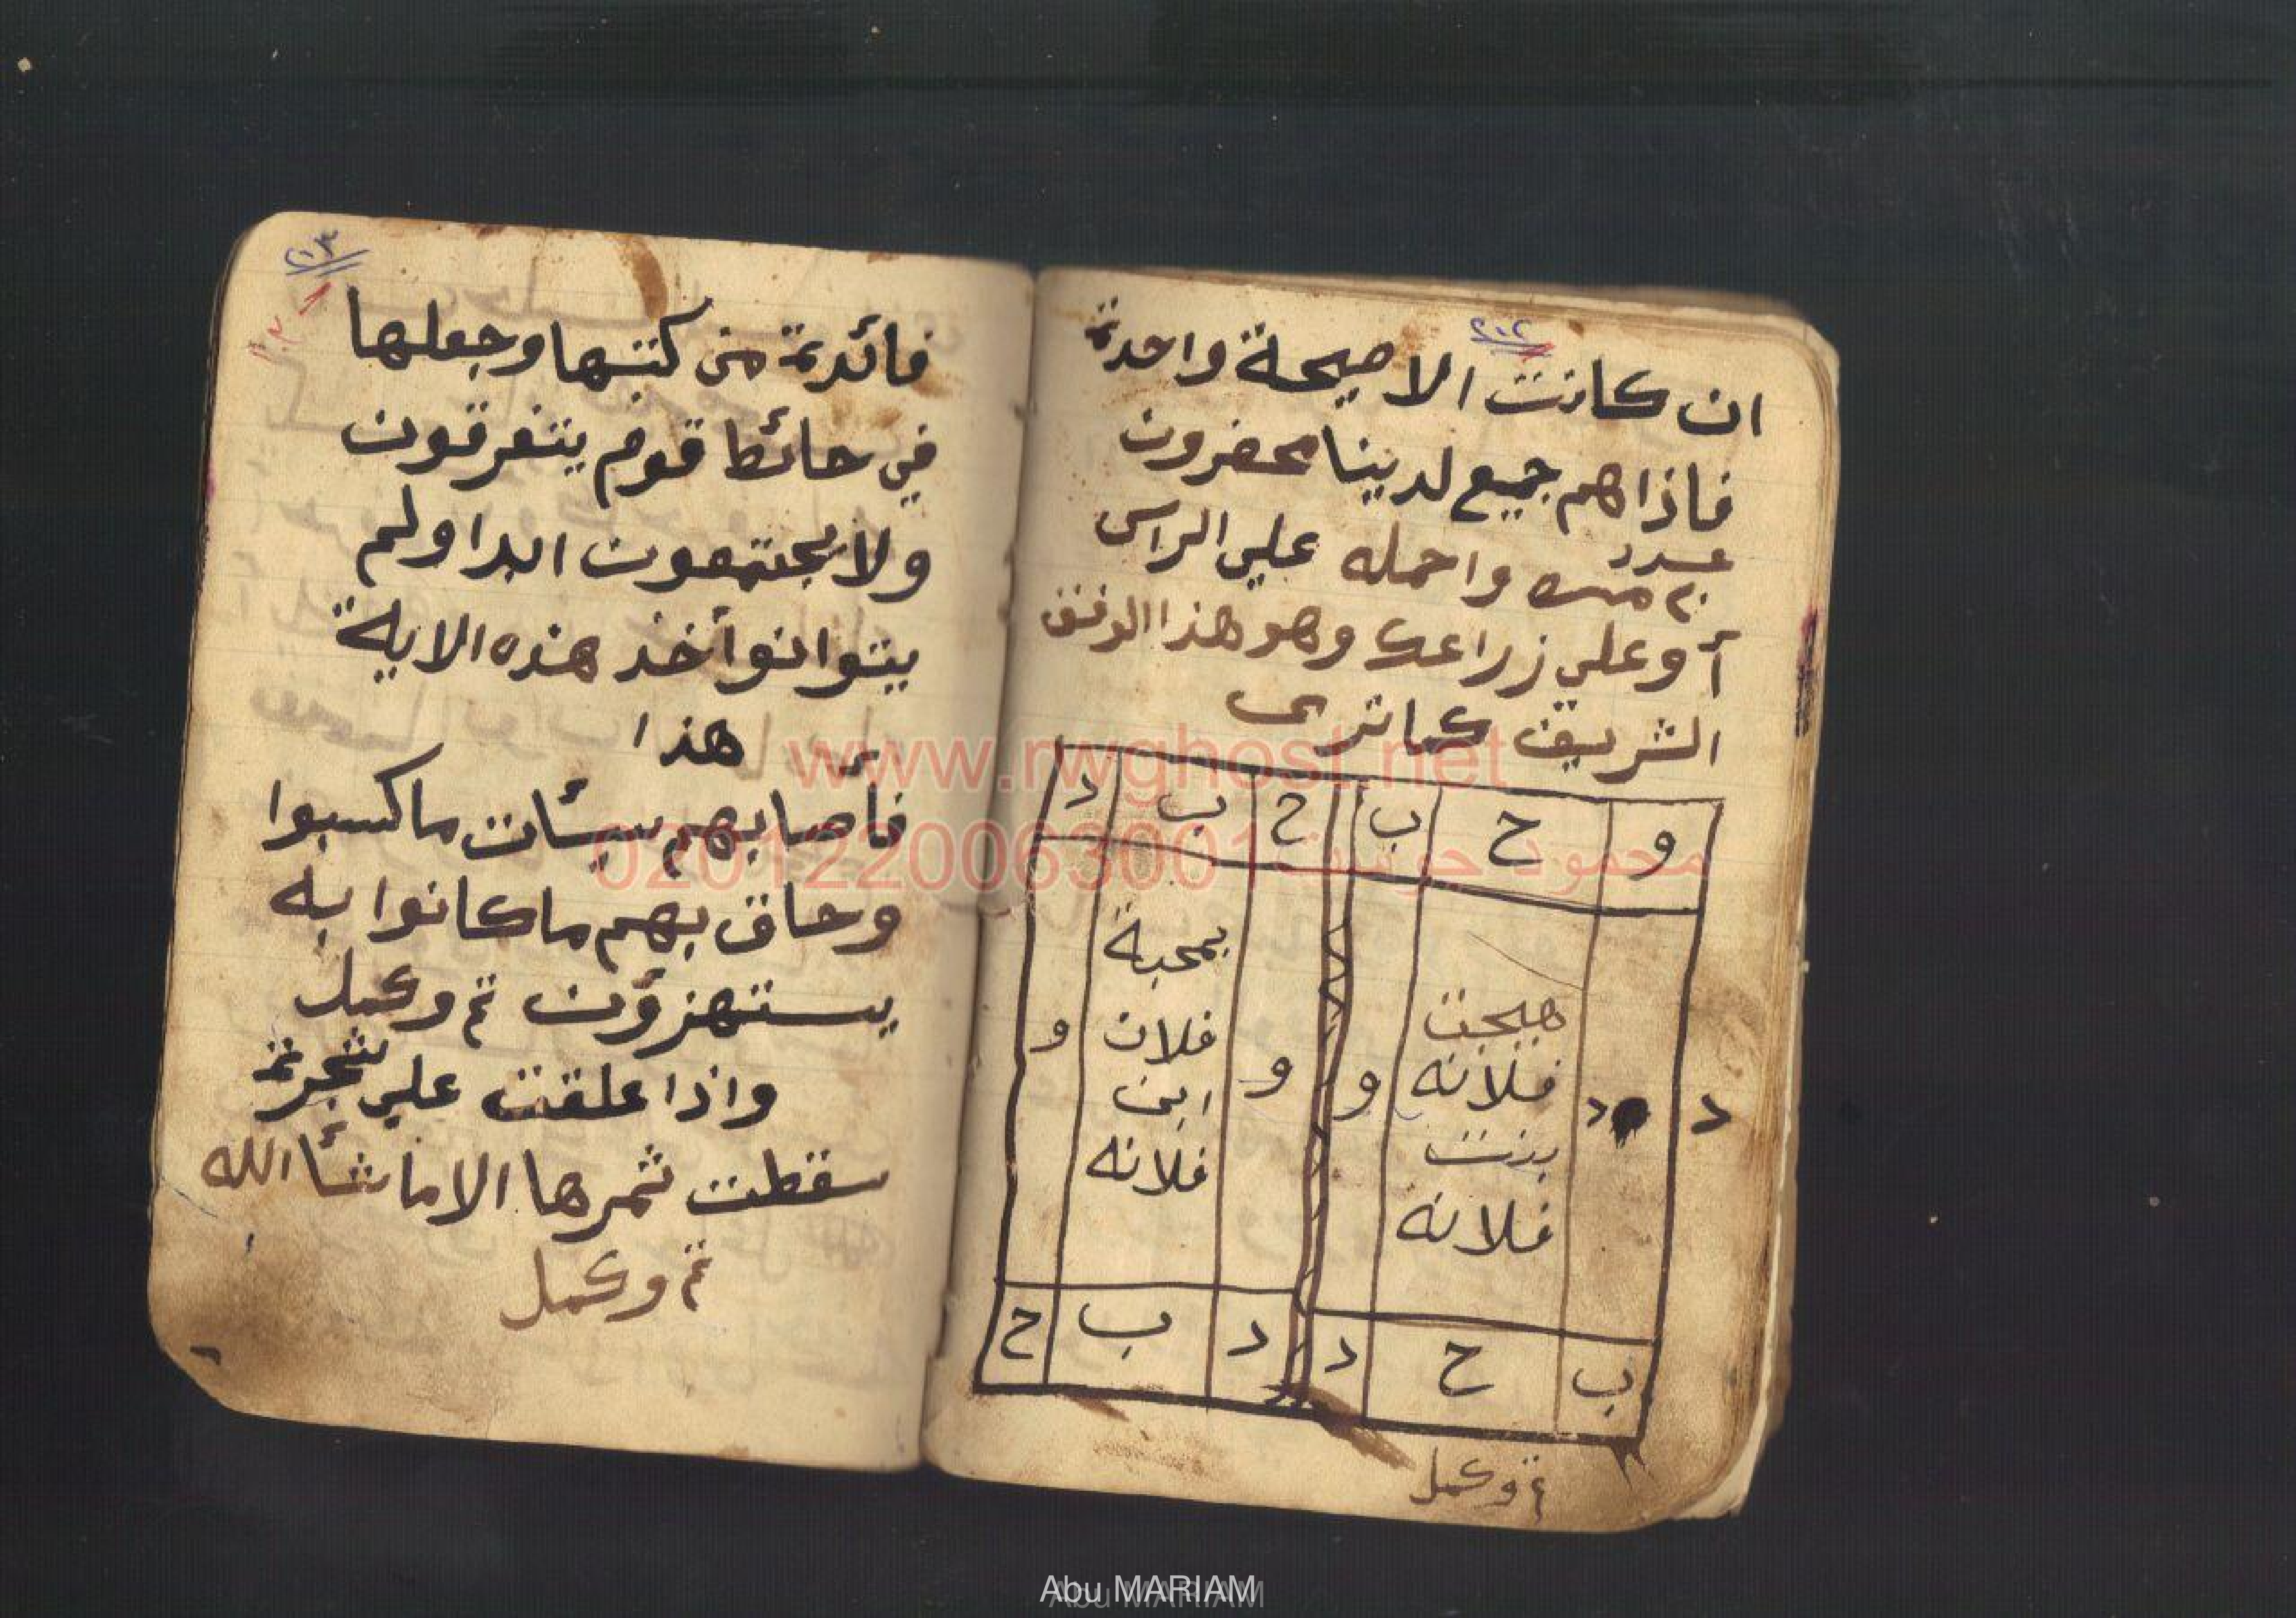 ٢٠٢
ان كانت الا صيحة واحدة
فاذا هم جميع لدينا محضرون
عدد
٢٠ مره واحمله علي الراس
أو علي زراعك وهو هذا الوفق
الشريف كما ترى
و ح ب ح ب د
هيجت
فلانه
بنت
فلانه
د د و و و
بمحبة
فلان
ابن
فلانه
ب ح د د ب ح
تم وكمل
٢٠٣
فائدة من كتبها وجعلها
في حائط قوم يتفرقون
ولا يجتمعون ابدا ولم
يتوانوا أخذ هذه الاية
هذا
فأصابهم سيئات ما كسبوا
وحاق بهم ما كانوا به
يستهزؤن تم وكمل
واذا علقت علي شجرة
سقطت ثمرها الا ما شأ الله
تم وكمل
www.rwghost.net
محمود جوست 0201220063001
Abu MARIAM